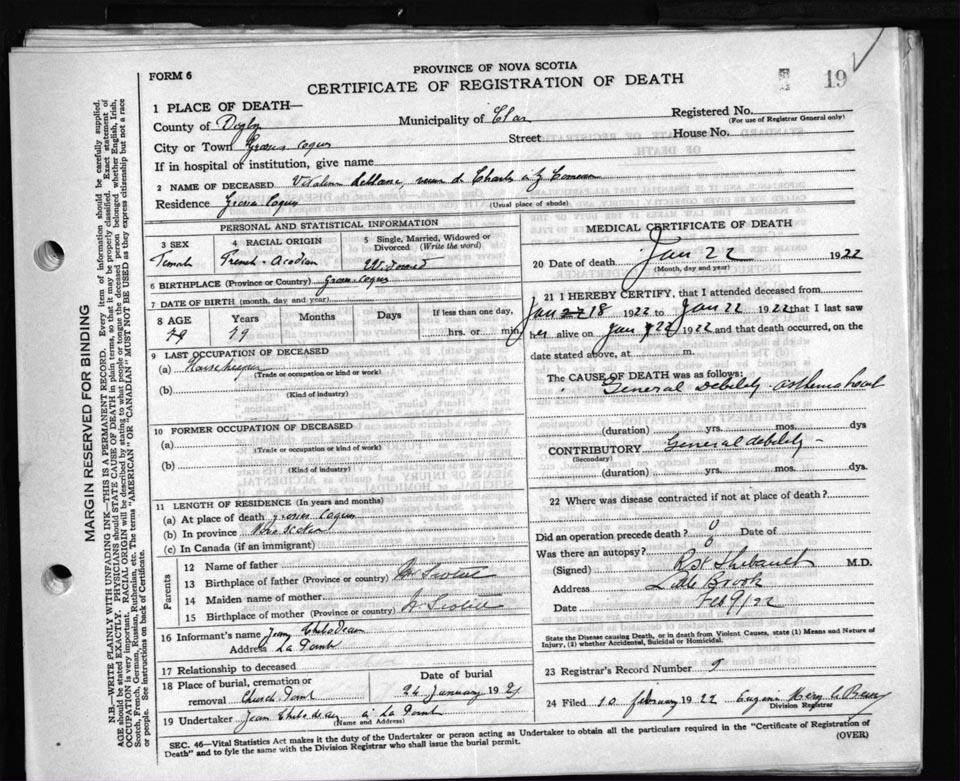 FORM 6
PROVINCE OF NOVA SCOTIA
CERTIFICATE OF REGISTRATION OF DEATH
19
1 PLACE OF DEATH—
County of Digby Municipality of Clare Registered No.
(For use of Registrar General only)
City or Town Grosses Coques Street House No.
If in hospital or institution, give name
2 NAME OF DECEASED Leblanc, de Charles Comeau
Residence Coques (Usual place of abode)
PERSONAL AND STATISTICAL INFORMATION
3 SEX 4 RACIAL ORIGIN 5 Single, Married, Widowed or Divorced (Write the word)
Female French-Acadian Widowed
6 BIRTHPLACE (Province or Country) Coques
7 DATE OF BIRTH (month, day and year)
8 AGE Years Months Days If less than one day,
79 79 hrs. or min.
9 LAST OCCUPATION OF DECEASED
(a) Housekeeper
(Trade or occupation or kind or work)
(b)
(Kind of industry)
10 FORMER OCCUPATION OF DECEASED
(a)
(Trade or occupation or kind or work)
(b)
(Kind of industry)
11 LENGTH OF RESIDENCE (In years and months)
(a) At place of death Coques
(b) In province
(c) In Canada (if an immigrant)
Parents
12 Name of father
13 Birthplace of father (Province or country)
14 Maiden name of mother
15 Birthplace of mother (Province or country)
16 Informant's name Jean
Address La Pointe
17 Relationship to deceased
18 Place of burial, cremation or removal Date of burial
Church Point 24 January 192
19 Undertaker Jean à La Pointe
(Name and Address)
MEDICAL CERTIFICATE OF DEATH
20 Date of death Jan 22 1922
(Month, day and year)
21 I HEREBY CERTIFY, that I attended deceased from
Jan 18 1922 to Jan 22 1922 that I last saw
her alive on Jan 22 1922 and that death occurred, on the
date stated above, at m.
The CAUSE OF DEATH was as follows:
General Debility
(duration) yrs. mos. dys
CONTRIBUTORY General debility -
(Secondary)
(duration) yrs. mos. dys.
22 Where was disease contracted if not at place of death?
Did an operation precede death? 0 Date of
Was there an autopsy? 0
(Signed) Thibault M.D.
Address Little Brook
Date Feb 9/22
State the Disease causing Death, or in death from Violent Causes, state (1) Means and Nature of
Injury, (2) whether Accidental, Suicidal or Homicidal.
23 Registrar's Record Number 9
24 Filed 10 february 1922
Division Registrar
SEC. 46—Vital Statistics Act makes it the duty of the Undertaker or person acting as Undertaker to obtain all the particulars required in the "Certificate of Registration of
Death" and to fyle the same with the Division Registrar who shall issue the burial permit.
(OVER)
MARGIN RESERVED FOR BINDING
N.B.—WRITE PLAINLY WITH UNFADING INK—THIS IS A PERMANENT RECORD. Every item of information should be carefully supplied.
AGE should be stated EXACTLY. PHYSICIANS should STATE CAUSE OF DEATH in plain terms, so that it may be properly classified. Exact statement of
OCCUPATION is very important. RACIAL ORIGIN will be described by stating to what people or tongue the deceased person belonged whether English, Irish,
Scotch, French, German, Russian, Ruthenian, etc. The terms "AMERICAN" or "CANADIAN" MUST NOT BE USED as they express citizenship but not a race
or people. See instructions on back of Certificate.